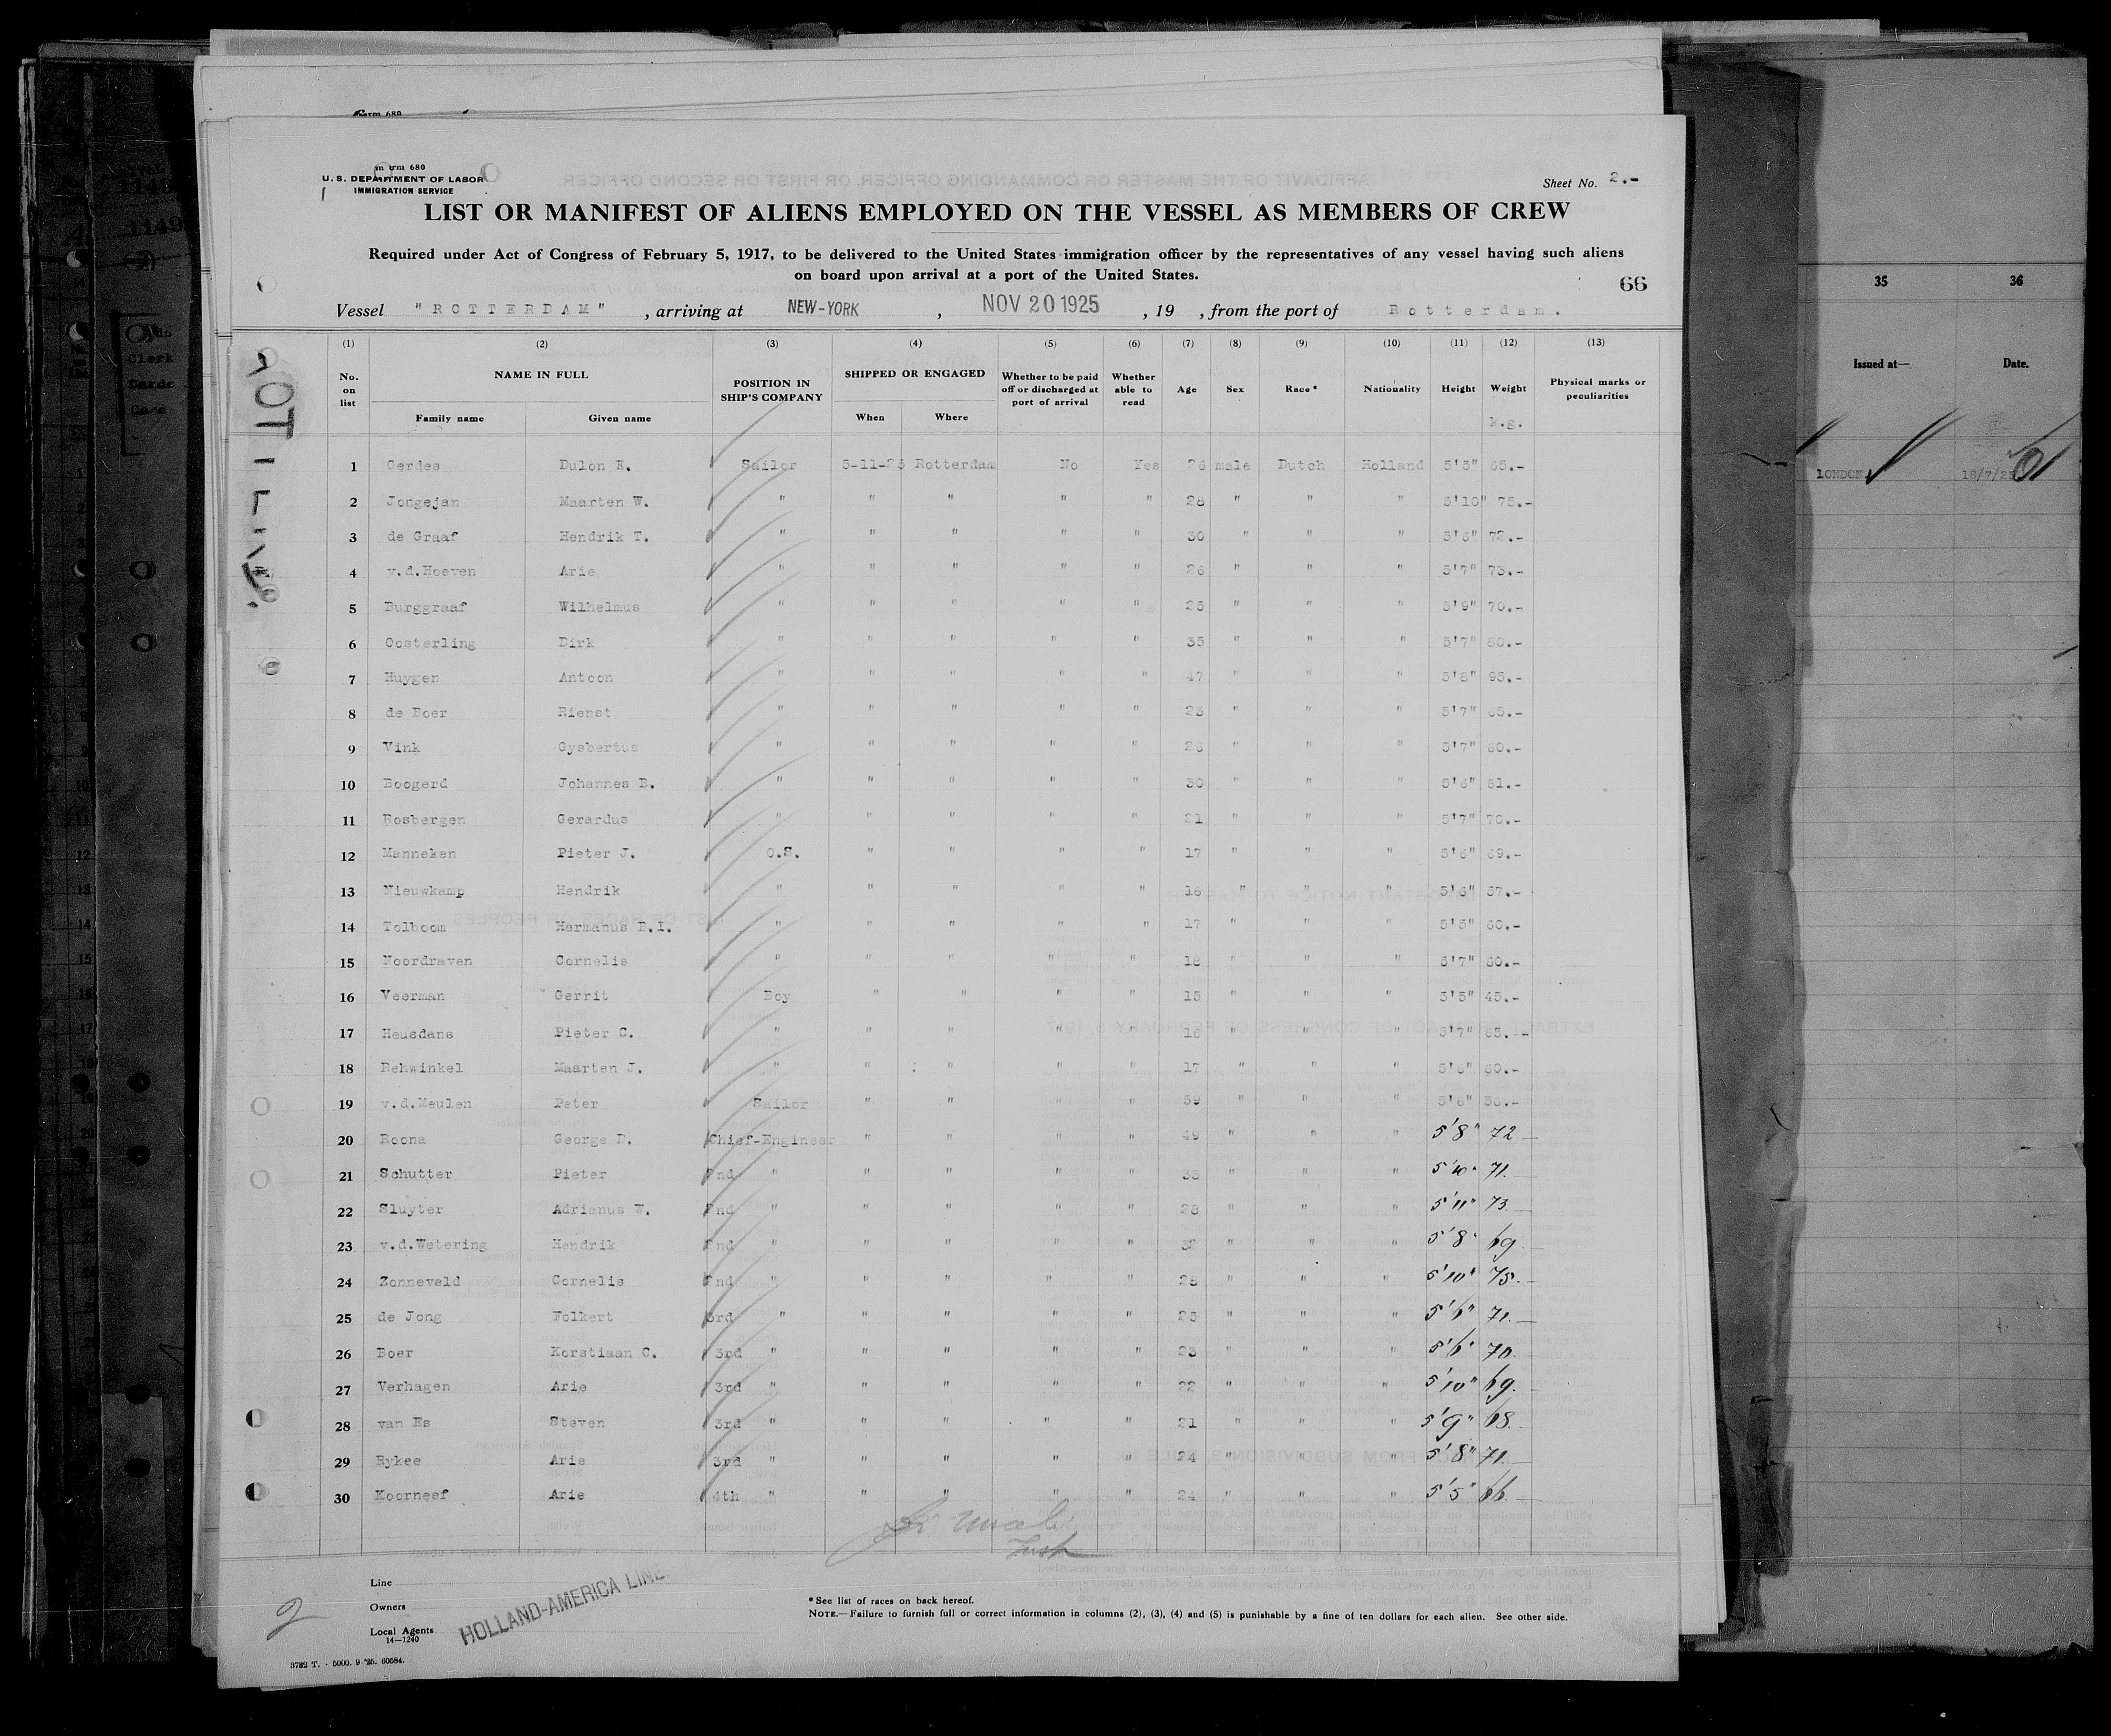 Form 680
U. S. DEPARTMENT OF LABOR
IMMIGRATION SERVICE
Sheet No. 2.-
LIST OR MANIFEST OF ALIENS EMPLOYED ON THE VESSEL AS MEMBERS OF CREW
Required under Act of Congress of February 5, 1917, to be delivered to the United States immigration officer by the representatives of any vessel having such aliens
on board upon arrival at a port of the United States.
66
Vessel "ROTTERDAM", arriving at NEW-YORK, NOV 20 1925, 19 , from the port of Rotterdam.
(1) (2) (3) (4) (5) (6) (7) (8) (9) (10) (11) (12) (13)
No. on list NAME IN FULL Family name Given name POSITION IN SHIP'S COMPANY SHIPPED OR ENGAGED When Where Whether to be paid off or discharged at port of arrival Whether able to read Age Sex Race* Nationality Height Weight k.g. Physical marks or peculiarities
1 Gerdes Dulon E. Sailor 5-11-25 Rotterdam No Yes 26 male Dutch Holland 5'5" 65.-
2 Jongejan Maarten W. " " " " " 28 " " " 5'10" 75.-
3 de Graaf Hendrik T. " " " " " 30 " " " 5'6" 72.-
4 v.d.Hoeven Arie " " " " " 26 " " " 5'7" 73.-
5 Burggraaf Wilhelmus " " " " " 25 " " " 5'9" 70.-
6 Oosterling Dirk " " " " " 35 " " " 5'7" 80.-
7 Huygen Antoon " " " " " 47 " " " 5'8" 95.-
8 de Boer Rienst " " " " " 23 " " " 5'7" 65.-
9 Vink Gysbertus " " " " " 26 " " " 5'7" 60.-
10 Boogerd Johannes B. " " " " " 30 " " " 5'6" 61.-
11 Rosbergen Gerardus " " " " " 21 " " " 5'7" 70.-
12 Manneken Pieter J. O.S. " " " " 17 " " " 5'6" 69.-
13 Nieuwkamp Hendrik " " " " " 16 " " " 5'6" 57.-
14 Tolboom Hermanus B.I. " " " " " 17 " " " 5'5" 60.-
15 Noordraven Cornelis " " " " " 18 " " " 5'7" 60.-
16 Veerman Gerrit Boy " " " " 15 " " " 5'5" 45.-
17 Heusdans Pieter C. " " " " " 16 " " " 5'7" 65.-
18 Rehwinkel Maarten J. " " " " " 17 " " " 5'6" 60.-
19 v.d.Meulen Peter Sailor " " " " 59 " " " 5'6"
20 Roona George D. Chief-Engineer " " " " 49 " " " 5'8" 72
21 Schutter Pieter 2nd " " " " " 33 " " " 5'10" 71.
22 Sluyter Adrianus W. 2nd " " " " " 28 " " " 5'11" 73
23 v.d.Wetering Hendrik 2nd " " " " " 32 " " " 5'8" 69
24 Zonneveld Cornelis 2nd " " " " " 28 " " " 5'10" 75.
25 de Jong Folkert 3rd " " " " " 25 " " " 5'6" 71.
26 Boer Korstiaan C. 3rd " " " " " 23 " " " 5'6" 70.
27 Verhagen Arie 3rd " " " " " 22 " " " 5'10" 69.
28 van Es Steven 3rd " " " " " 21 " " " 5'9" 68.
29 Rykee Arie 3rd " " " " " 24 " " " 5'8" 71.
30 Koorneef Arie 4th " " " " " 24 " " " 5'5" 66.
Line
Owners
Local Agents
14—1240
HOLLAND-AMERICA LINE
*See list of races on back hereof.
NOTE.—Failure to furnish full or correct information in columns (2), (3), (4) and (5) is punishable by a fine of ten dollars for each alien. See other side.
3782 T. - 5000. 9-'25. 60584.
2
35 36
Issued at— Date.
LONDON